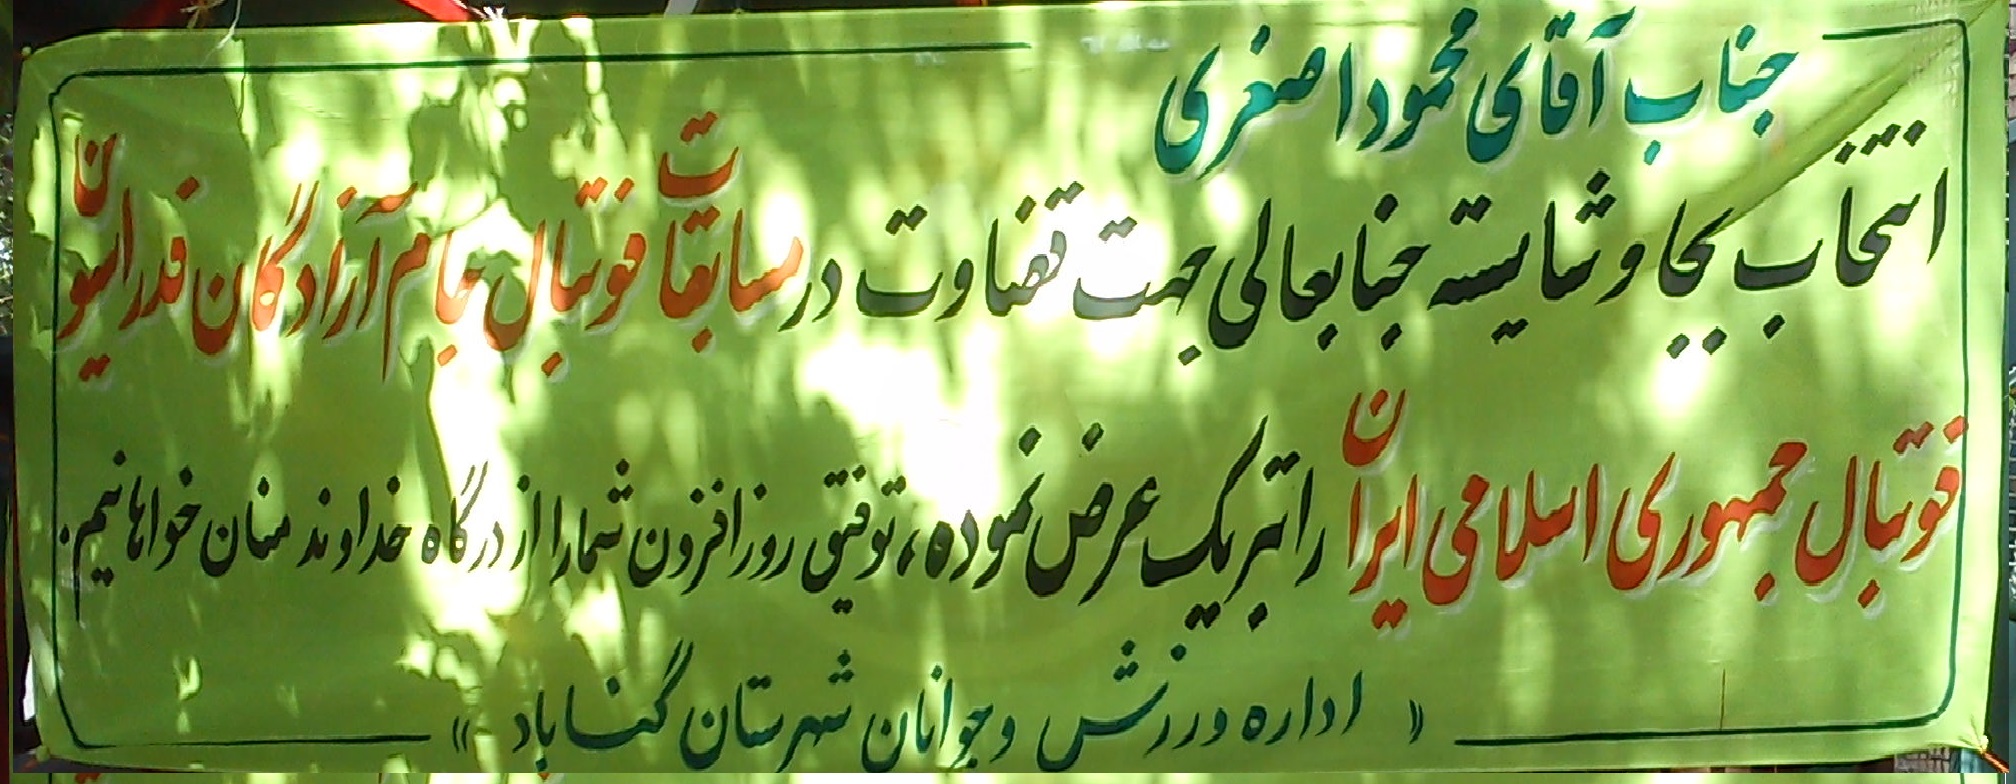 جناب آقای محمود اصغری
انتخاب بجا و شایسته جنابعالی جهت قضاوت در مسابقات فوتبال جام آزادگان فدراسیون
فوتبال جمهوری اسلامی ایران را تبریک عرض نموده، توفیق روزافزون شما را از درگاه خداوند منان خواهانیم.
« اداره ورزش و جوانان شهرستان گناباد »